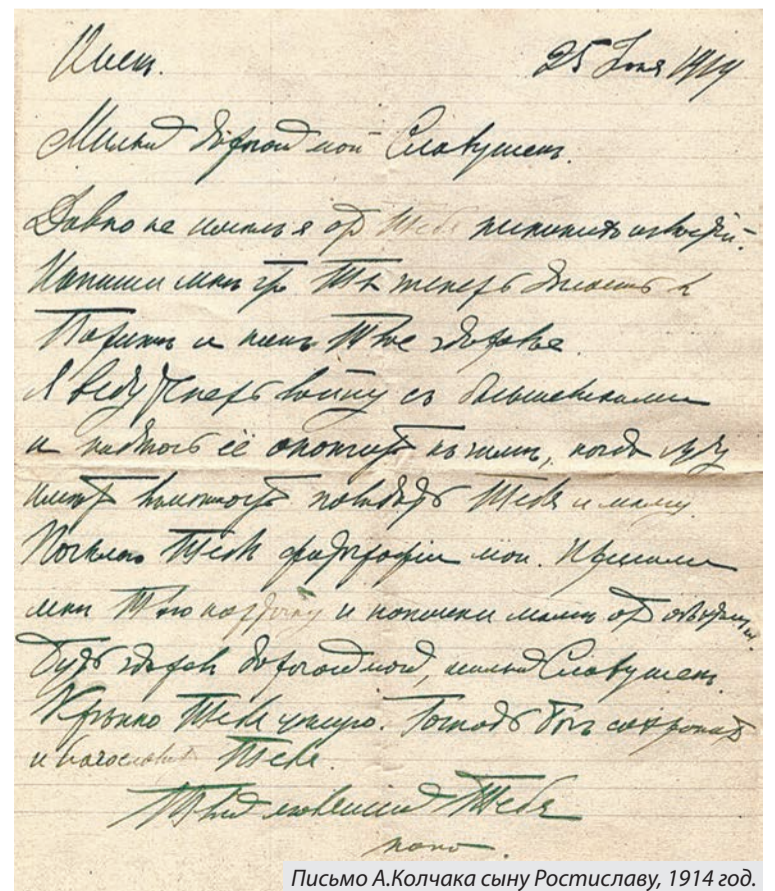 Омск.
25 Июня 1919
Милый дорогой мой Славушек.
Давно не имею я от Тебя никаких известий.
Напиши мне что Ты теперь делаешь в
Париже и как Твое здоровье.
Я веду теперь войну с большевиками
и надеюсь её окончить к зиме, когда буду
иметь возможность повидать Тебя и маму.
Посылаю Тебе фотографии мои. Пришли
мне Твою карточку и напиши маме
Будь здоров дорогой мой, милый Славушек.
Крепко Тебя целую. Господь Бог сохранит
и благословит Тебя.
Твой любящий Тебя
папа.
Письмо А.Колчака сыну Ростиславу, 1914 год.